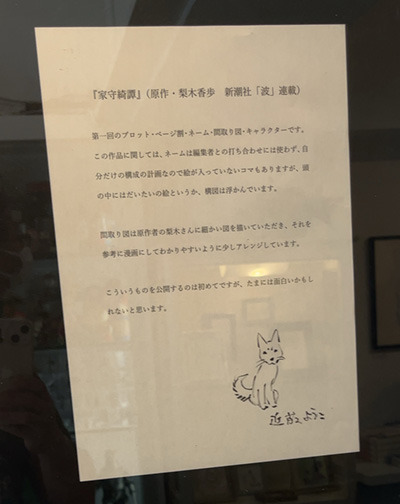 『家守綺譚』(原作・梨木香歩　新潮社「波」連載)
第一回のプロット・ページ割・ネーム・間取り図・キャラクターです。
この作品に関しては、ネームは編集者との打ち合わせには使わず、自
分だけの構成の計画なので絵が入っていないコマもありますが、頭
の中にはだいたいの絵というか、構図は浮かんでいます。
間取り図は原作者の梨木さんに細かい図を描いていただき、それを
参考に漫画にしてわかりやすいように少しアレンジしています。
こういうものを公開するのは初めてですが、たまには面白いかもし
れないと思います。
近藤ようこ